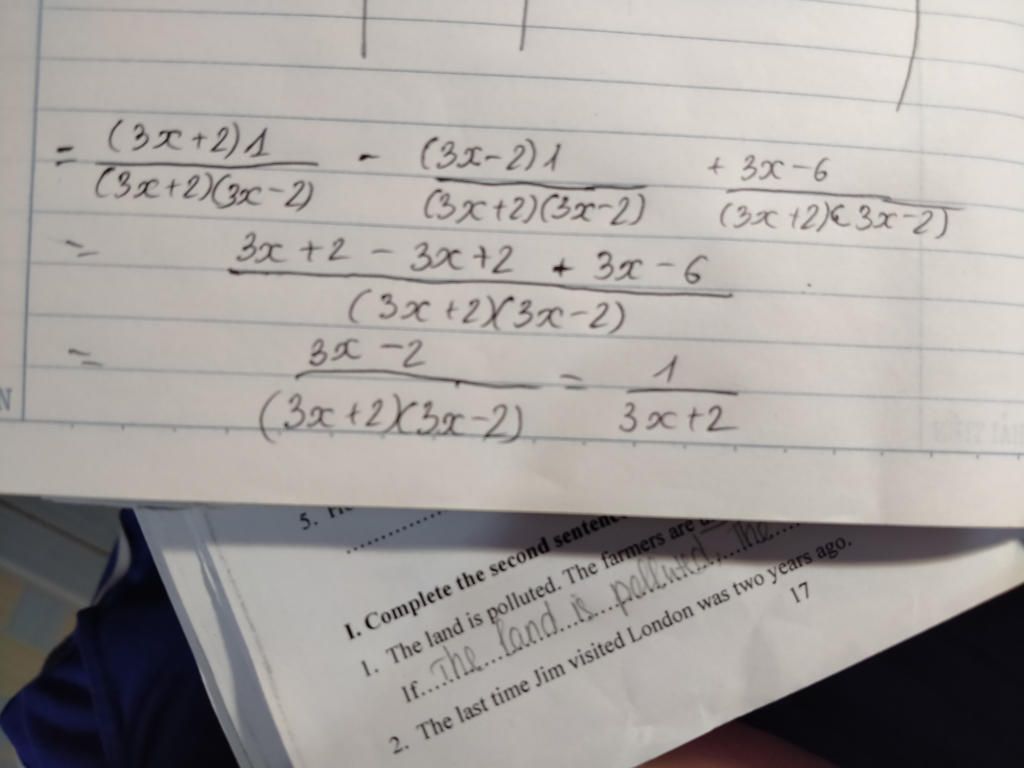 = (3x+2)1 / (3x+2)(3x-2) - (3x-2)1 / (3x+2)(3x-2) + 3x-6 / (3x+2)(3x-2)
= 3x+2 - 3x+2 + 3x-6 / (3x+2)(3x-2)
= 3x-2 / (3x+2)(3x-2) = 1 / 3x+2
N
5.
I. Complete the second
1. The land is polluted. The farmers are
If....The....land...is...polluted,...The.....
2. The last time Jim visited London was two years ago.
17